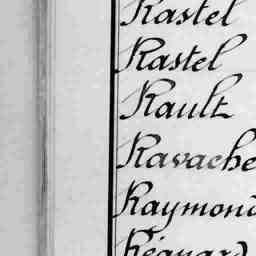 Rastel
Rastel
Rault
Ravache
Raymond
Régnard